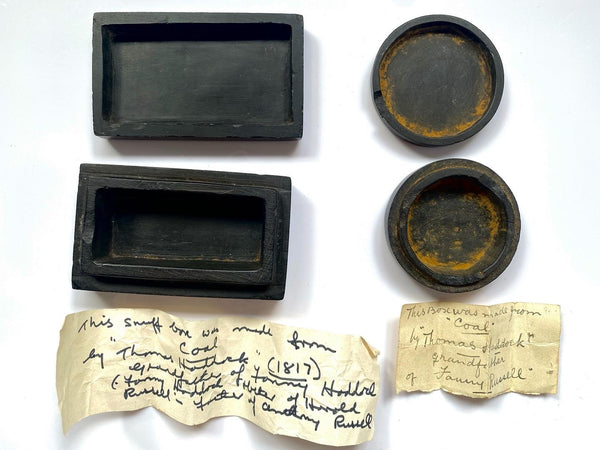 This snuff box was made from
Coal
by "Thomas Haddock" (1817)
Grandfather of Fanny Haddock
(Fanny Haddock of Harold
Russell - father of Anthony Russell
This Box was made from"
"Coal"
by "Thomas Haddock"
grandfather
of Fanny Russell"